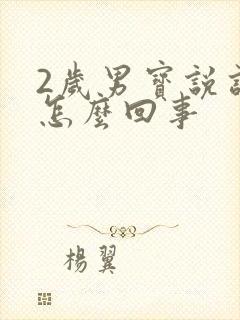 2歲男寶說
怎麼回事
楊翼